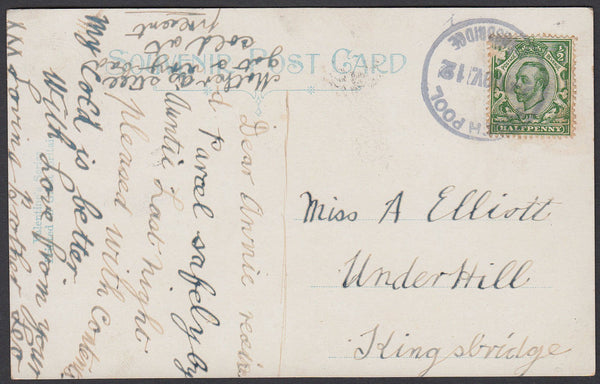 SOUVENIR POST CARD
HALFPENNY
H POOL
BRIDGE
12
Miss A Elliott
Under Hill
Kingsbridge
Dear Annie
parcel safely by
Auntie Last night
pleased with
My Cold is better.
With Love from your
Loving Brother
Mother
got a
cold at
present